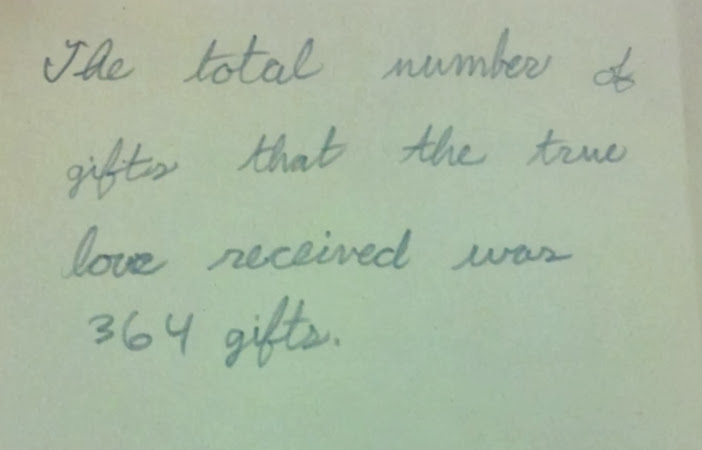 The total number of
gifts that the true
love received was
364 gifts.